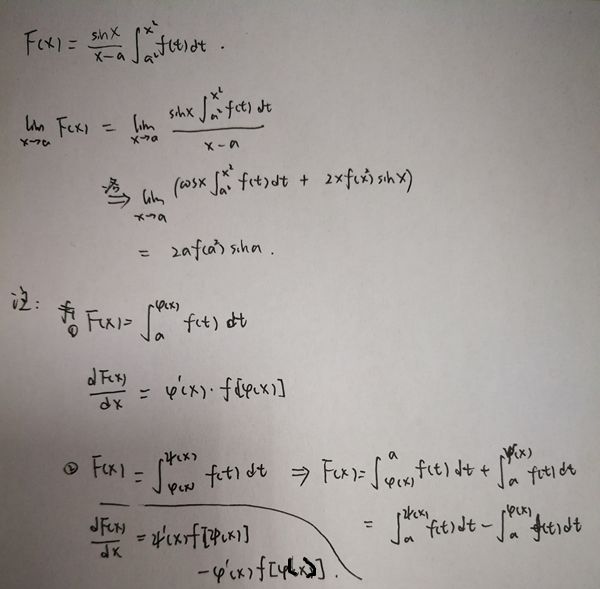 F(x) = sinx/(x-a) ∫_{a²}^{x²} f(t)dt .
lim_{x→a} F(x) = lim_{x→a} (sinx ∫_{a²}^{x²} f(t) dt)/(x-a)
洛⇒ lim_{x→a} (cosx ∫_{a²}^{x²} f(t)dt + 2xf(x²)sinx)
= 2af(a²)sina .
注: ① F(x) = ∫_{a}^{φ(x)} f(t) dt
dF(x)/dx = φ'(x)· f[φ(x)]
② F(x) = ∫_{φ(x)}^{ψ(x)} f(t) dt ⇒ F(x) = ∫_{φ(x)}^{a} f(t) dt + ∫_{a}^{ψ(x)} f(t) dt
= ∫_{a}^{ψ(x)} f(t)dt - ∫_{a}^{φ(x)} f(t)dt
dF(x)/dx = ψ'(x)f[ψ(x)]
-φ'(x)f[φ(x)] .